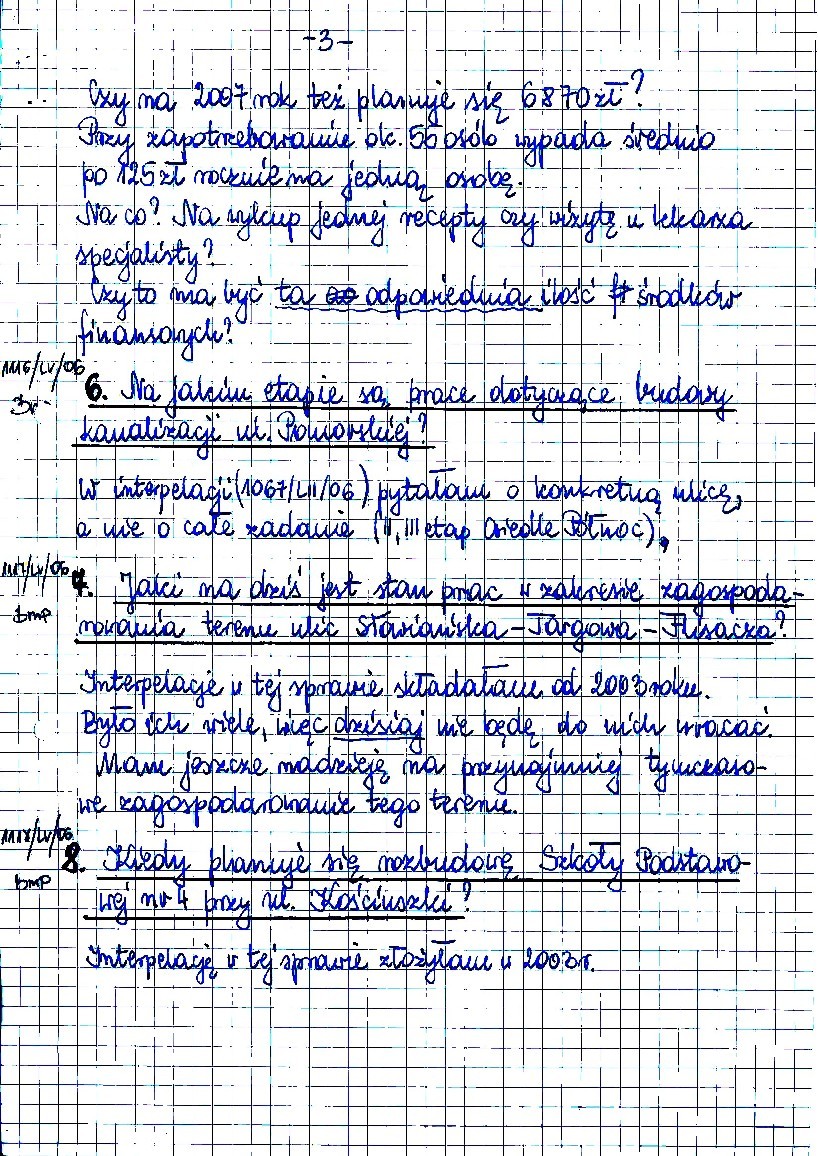 -3-
Czy na 2007 rok też planuje się 6870 zł?
Przy zapotrzebowaniu ok. 55 osób wypada średnio
po 125 zł rocznie na jedną osobę.
Na co? Na wykup jednej recepty czy wizytę u lekarza
specjalisty?
Czy to ma być ta odpowiednia ilość środków
finansowych?
1116/LV/06
6. Na jakim etapie są prace dotyczące budowy
kanalizacji ul. Pomorskiej?
W interpelacji (1067/LII/06) pytałam o konkretną ulicę,
a nie o całe zadanie (II, III etap Osiedle Północ).
1117/LV/06
7. Jaki na dziś jest stan prac w zakresie zagospoda-
BMP
rowania terenu ulic Słowiańska – Targowa – Flisacza?
Interpelacje w tej sprawie składałam od 2003 roku.
Było ich wiele, więc dzisiaj nie będę do nich wracać.
Mam jeszcze nadzieję na przynajmniej tymczaso-
we zagospodarowanie tego terenu.
1118/LV/06
8. Kiedy planuje się rozbudowę Szkoły Podstawo-
BMP
wej nr 4 przy ul. Kościuszki?
Interpelację w tej sprawie złożyłam w 2003 r.